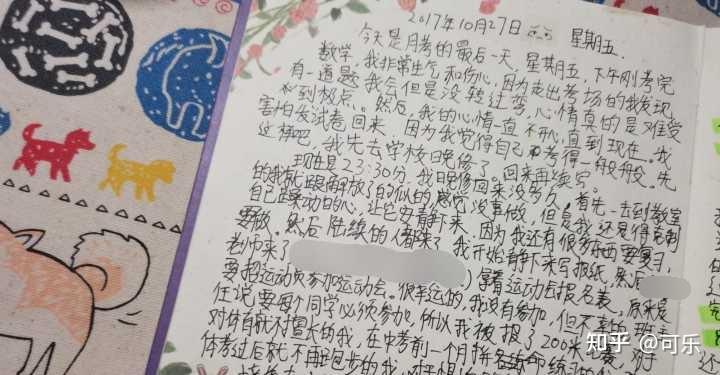 2017年10月27日 星期五.
今天是月考的最后一天,星期五,下午刚考完
数学,我非常生气和伤心,因为走出考场的我发现
有一道题我会但是没转过弯,心情真的是难受
到极点。然后,我的心情一直不开心直到现在。我
害怕发试卷回来,因为我觉得自己考得一般般。先
这样吧,我先去学校晚修了。回来再续写。
现在是23:30分,我晚修回来没多久。首先一去到教室
的我就跟解放了的似的感觉没事做,但是我还是得克制
自己躁动的心,让它安静下来,因为我还有很多东西要复习,
要做。然后陆续的人都来了,我开始静下来写报纸,然后
老师来了 ) 拿着运动会报名表,原来是
要招运动员参加运动会。很幸运的,我没有参加,但不幸的,班主
任说要每个同学必须参加,所以我被报了200米比赛,对于
对体育就不擅长的我,在中考前一个月拼名拼命练习的
体考过后就不再跑步的我
知乎 @可乐